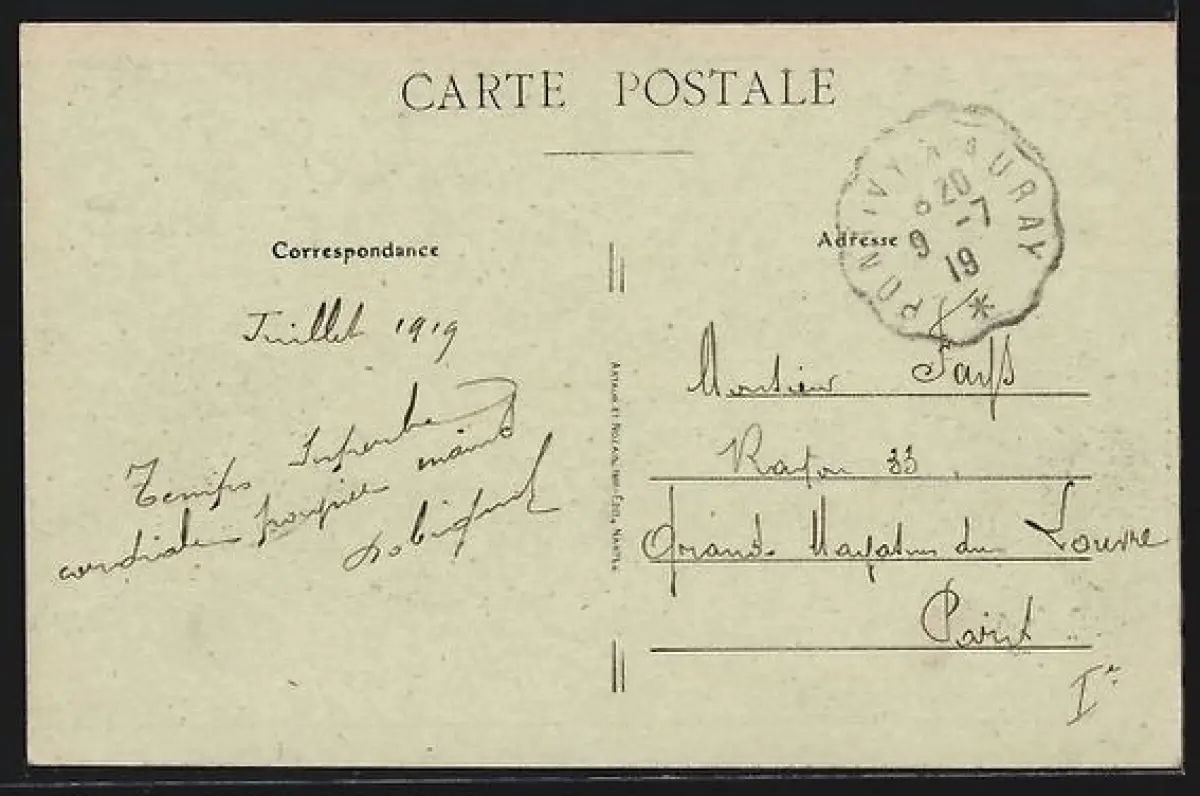 CARTE POSTALE
PONTIVY A AURAY
20 -7
19
*
Correspondance
Adresse
Juillet 1919
Temps Superbe
cordiale poignée mains
Robiquet
ARTAUD ET NOZAIS, IMPR.-EDIT., NANTES
Monsieur
Rayon 33.
Grands Magasins du Louvre
Paris
Ier